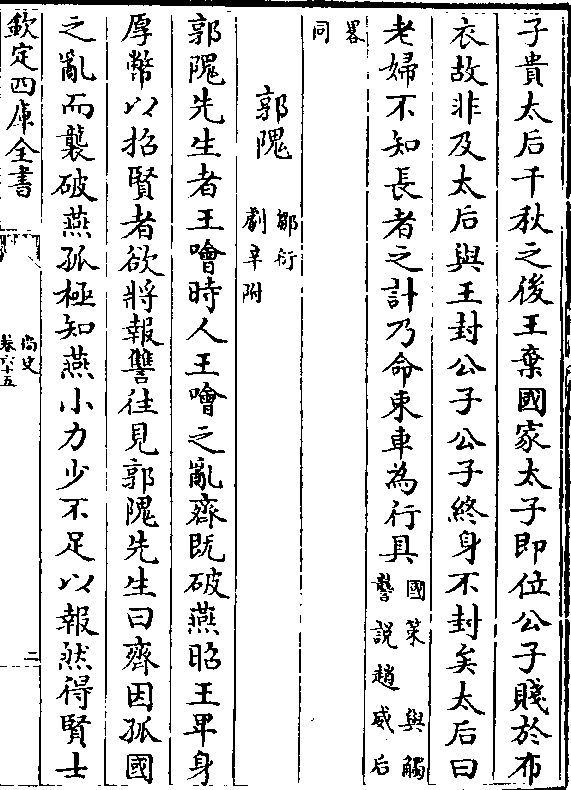 子貴太后千秋之後王棄國家太子即位公子賤於布
衣故非及太后與王封公子公子終身不封矣太后曰
老婦不知長者之計乃命束車為行具國策與觸
讋説趙威后
畧
同
郭隗鄒衍
劇辛附
郭隗先生者王噲時人王噲之亂齊既破燕昭王卑身
厚幣以招賢者欲將報讐往見郭隗先生曰齊因孤國
之亂而襲破燕孤極知燕小力少不足以報然得賢士
欽定四庫全書
尚史
卷六十五
二